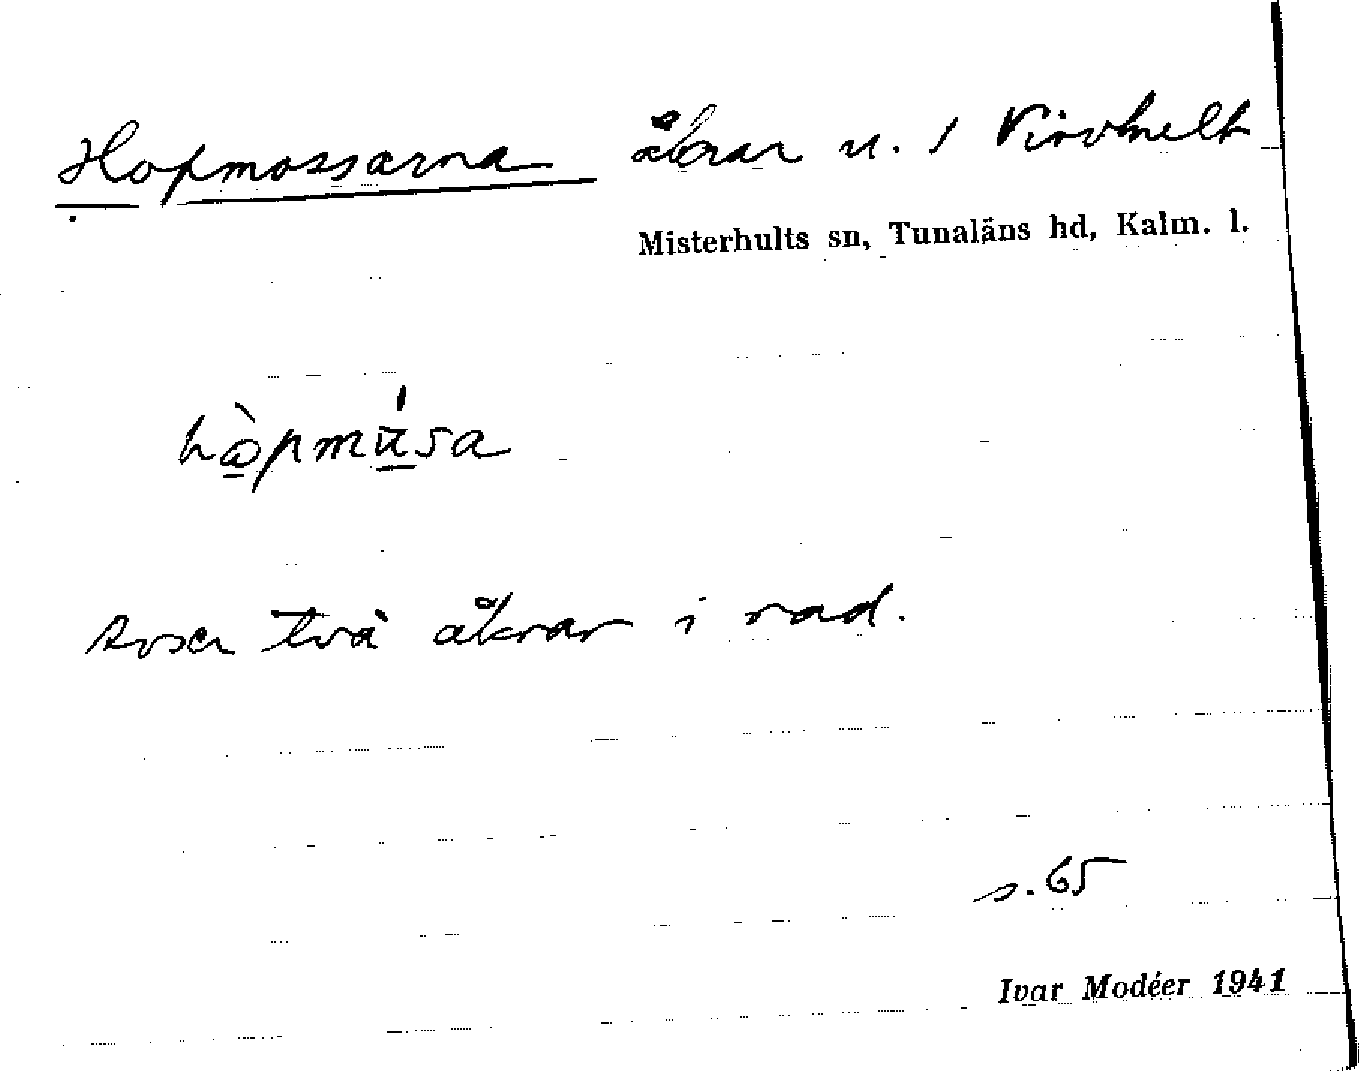 Hopmossarna åkrar u. 1 Virvhult
Misterhults sn, Tunaläns hd, Kalm. l.
hòpmúsa
två åkrar i rad.
s. 65
Ivar Modéer 1941